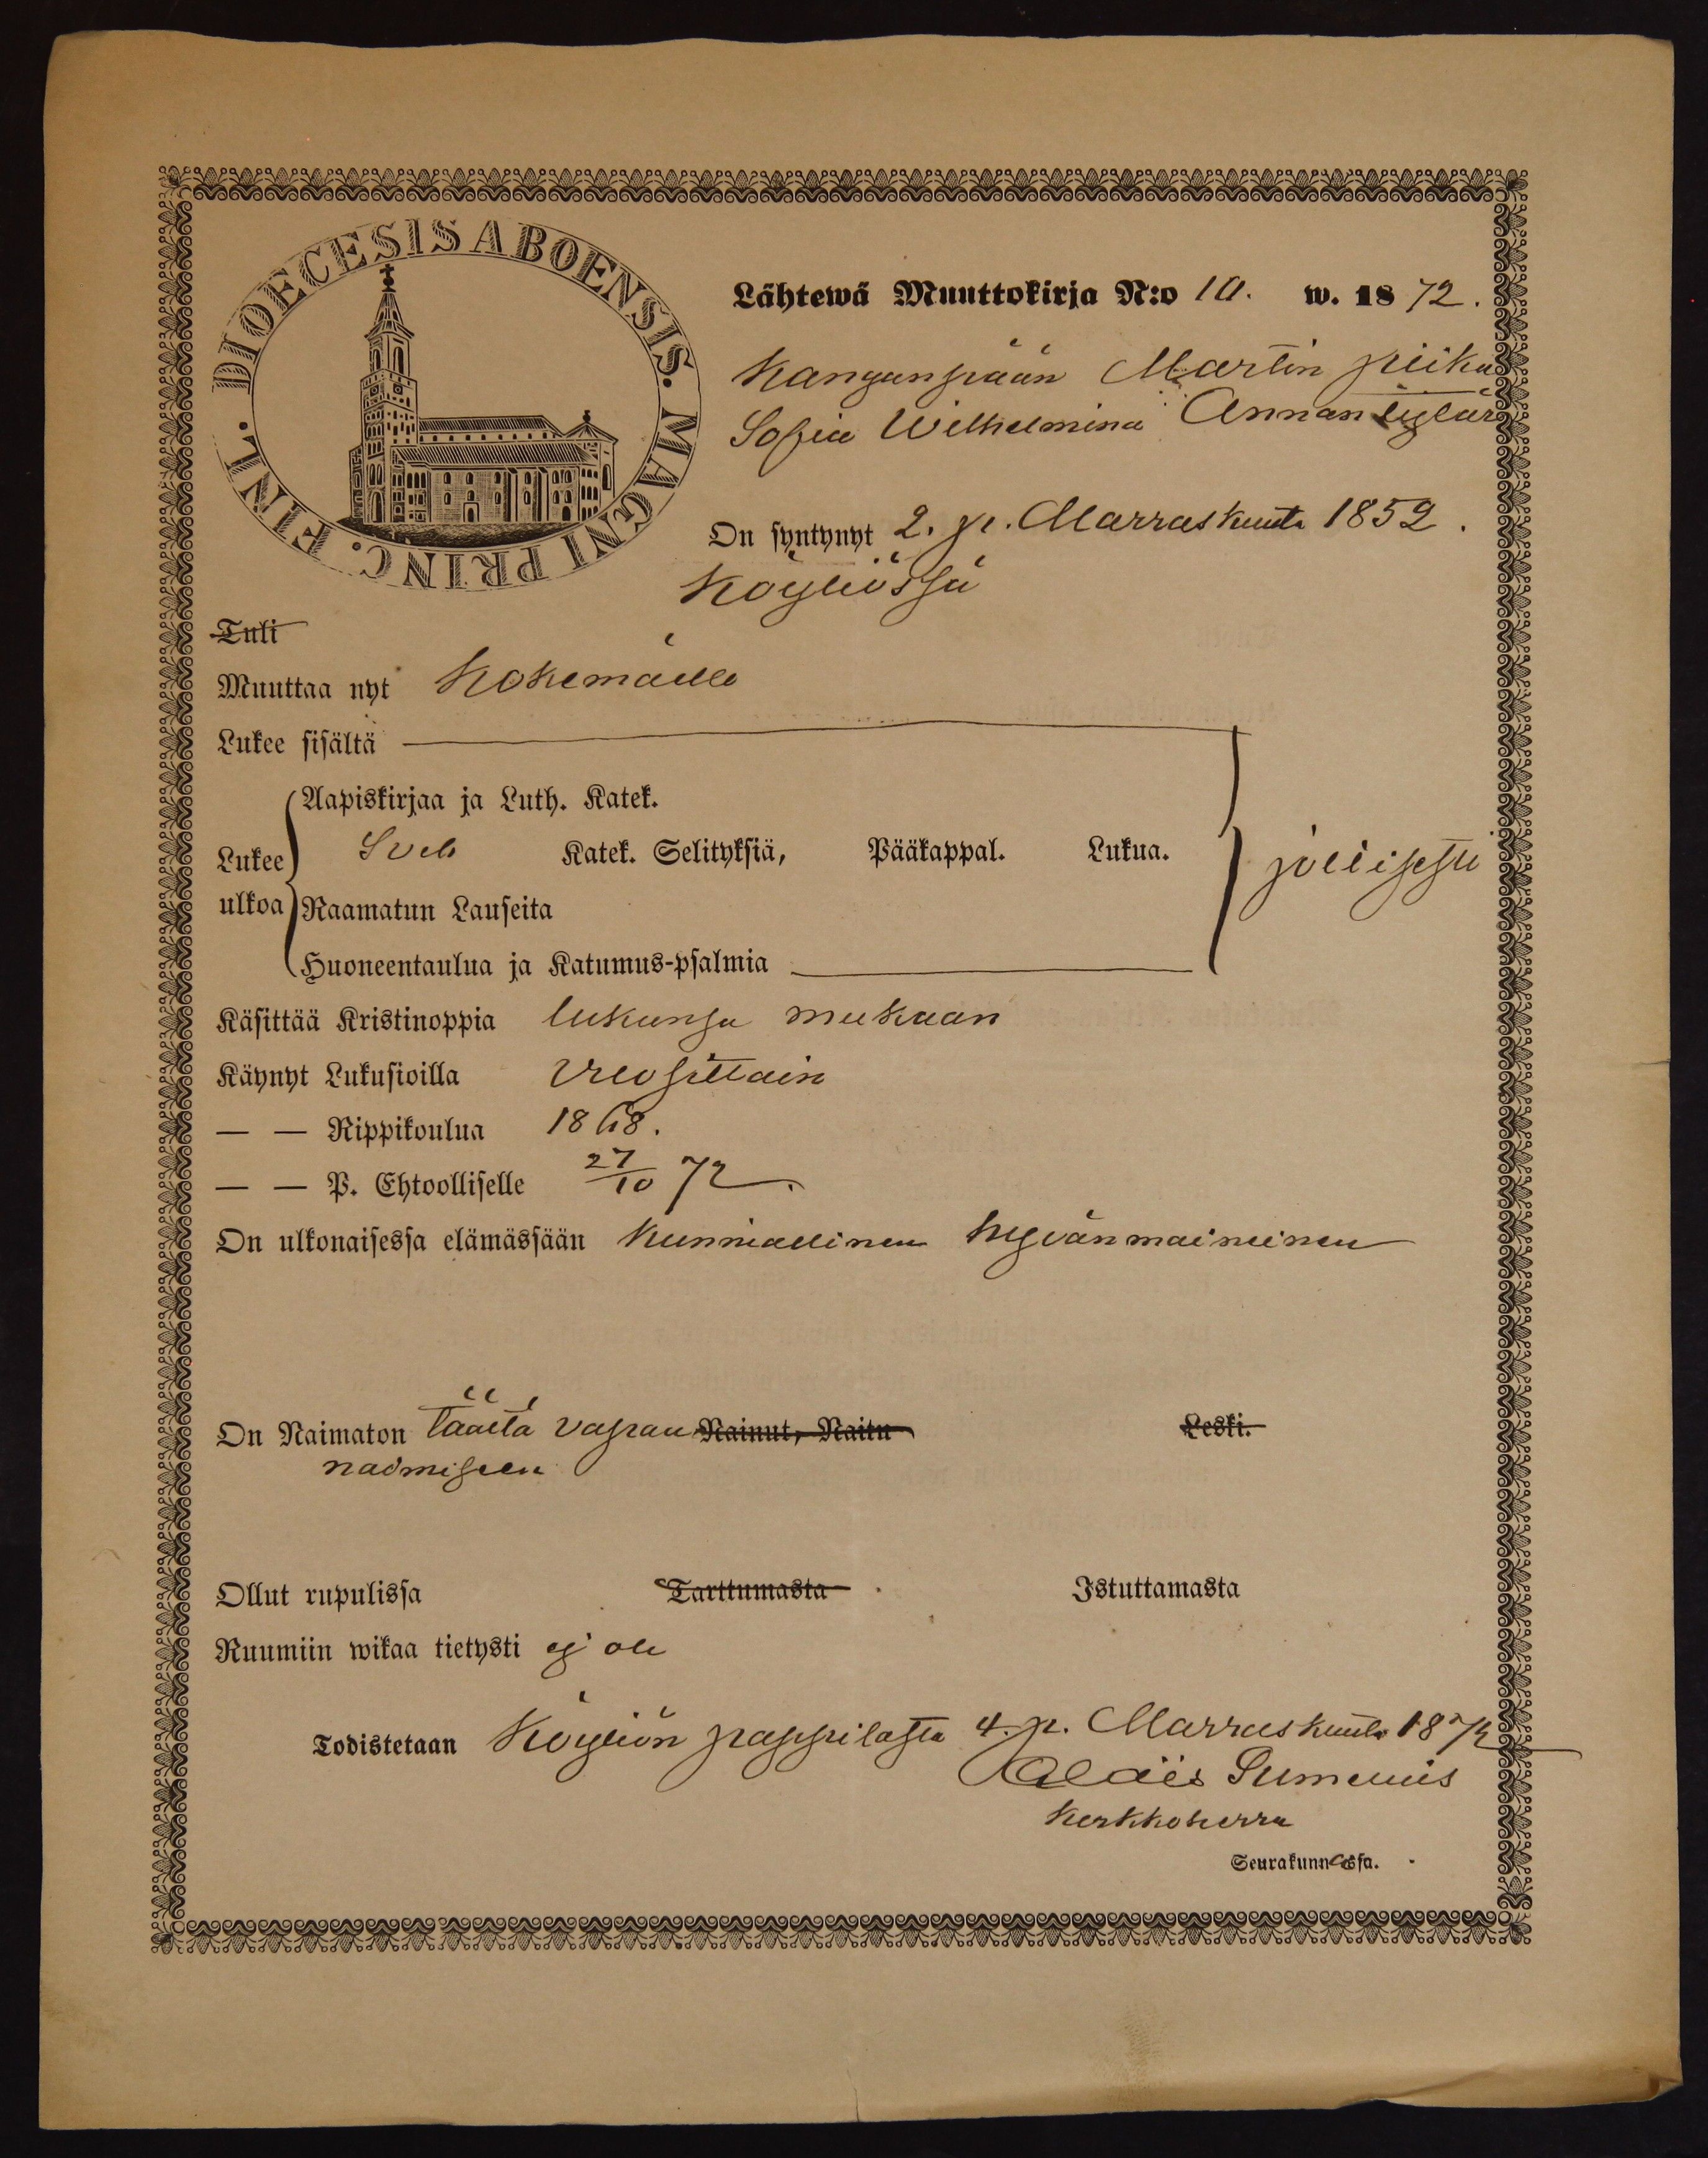 DIOECESIS ABOENSIS. MAGNI PRINC. FINL.
Lähtewä Muuttokirja N:o 10. w. 1872.
Kanganpään Martin piika
Sofia Wilhelmina Annantytär
On syntynyt 2. p. Marraskuuta 1852.
Köyliössä
Tuli
Muuttaa nyt Kokemäelle
Lukee sisältä
Aapiskirjaa ja Luth. Kateк.
Lukee Sveb Katek. Selityksiä, Pääkappal. Lukua. jollisesti
ulkoa Raamatun Lauseita
Huoneentaulua ja Katumus-psalmia
Käsittää Kristinoppia lukunsa mukaan
Käynyt Lukusioilla Vuosittain
— — Rippikoulua 1868.
— — P. Ehtoolliselle 27/10 72.
On ulkonaisessa elämässään kunniallinen hyvänmaineinen
On Naimaton täältä vapaa Nainut, Naitu Leski.
naimiseen
Ollut rupulissa Tarttumasta Istuttamasta
Ruumiin wikaa tietysti ej ole
Todistetaan Köyliön pappilasta 4. p. Marraskuuta 1872
Kirkkoherra
Seurakunnassa.